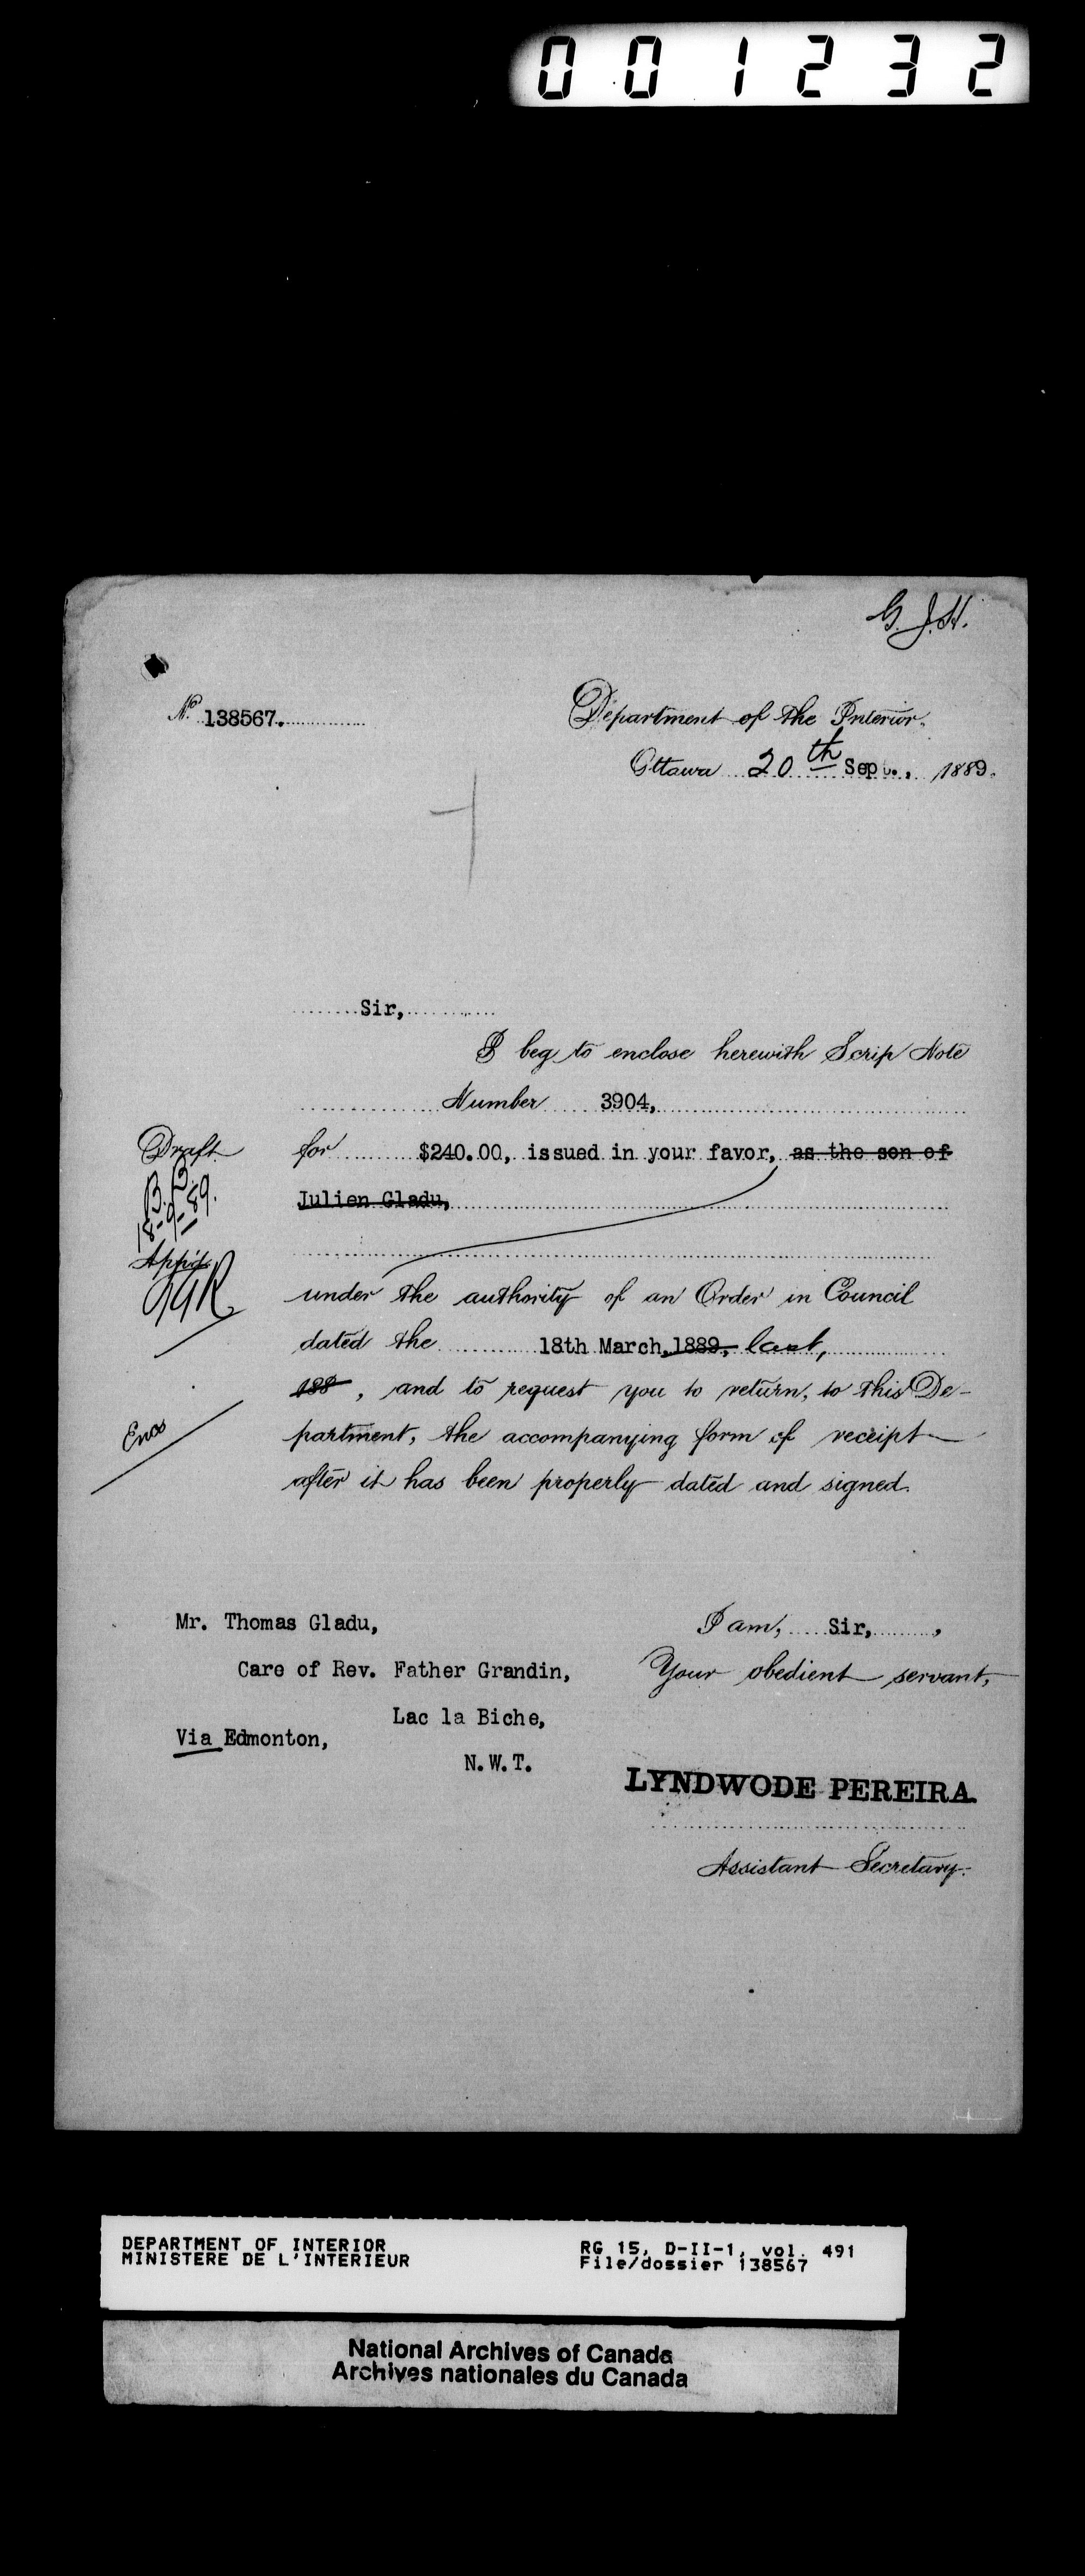 001232
G.J.H.
No 138567.
Department of the Interior.
Ottawa 20th Sept., 1889.
Sir,
I beg to enclose herewith Scrip Note
Number 3904,
Draft
for $240.00, issued in your favor, as the son of
B.B.
Julien Gladu,
18-9-89.
App'd.
under the authority of an Order in Council
dated the 18th March, 1889, last,
188 , and to request you to return, to this De-
Encs
partment, the accompanying form of receipt
after it has been properly dated and signed.
Mr. Thomas Gladu,
Care of Rev. Father Grandin,
Lac la Biche,
Via Edmonton,
N.W.T.
I am, Sir,
Your obedient servant,
LYNDWODE PEREIRA
Assistant Secretary.
DEPARTMENT OF INTERIOR
MINISTERE DE L'INTERIEUR
RG 15, D-II-1, vol. 491
File/dossier 138567
National Archives of Canada
Archives nationales du Canada